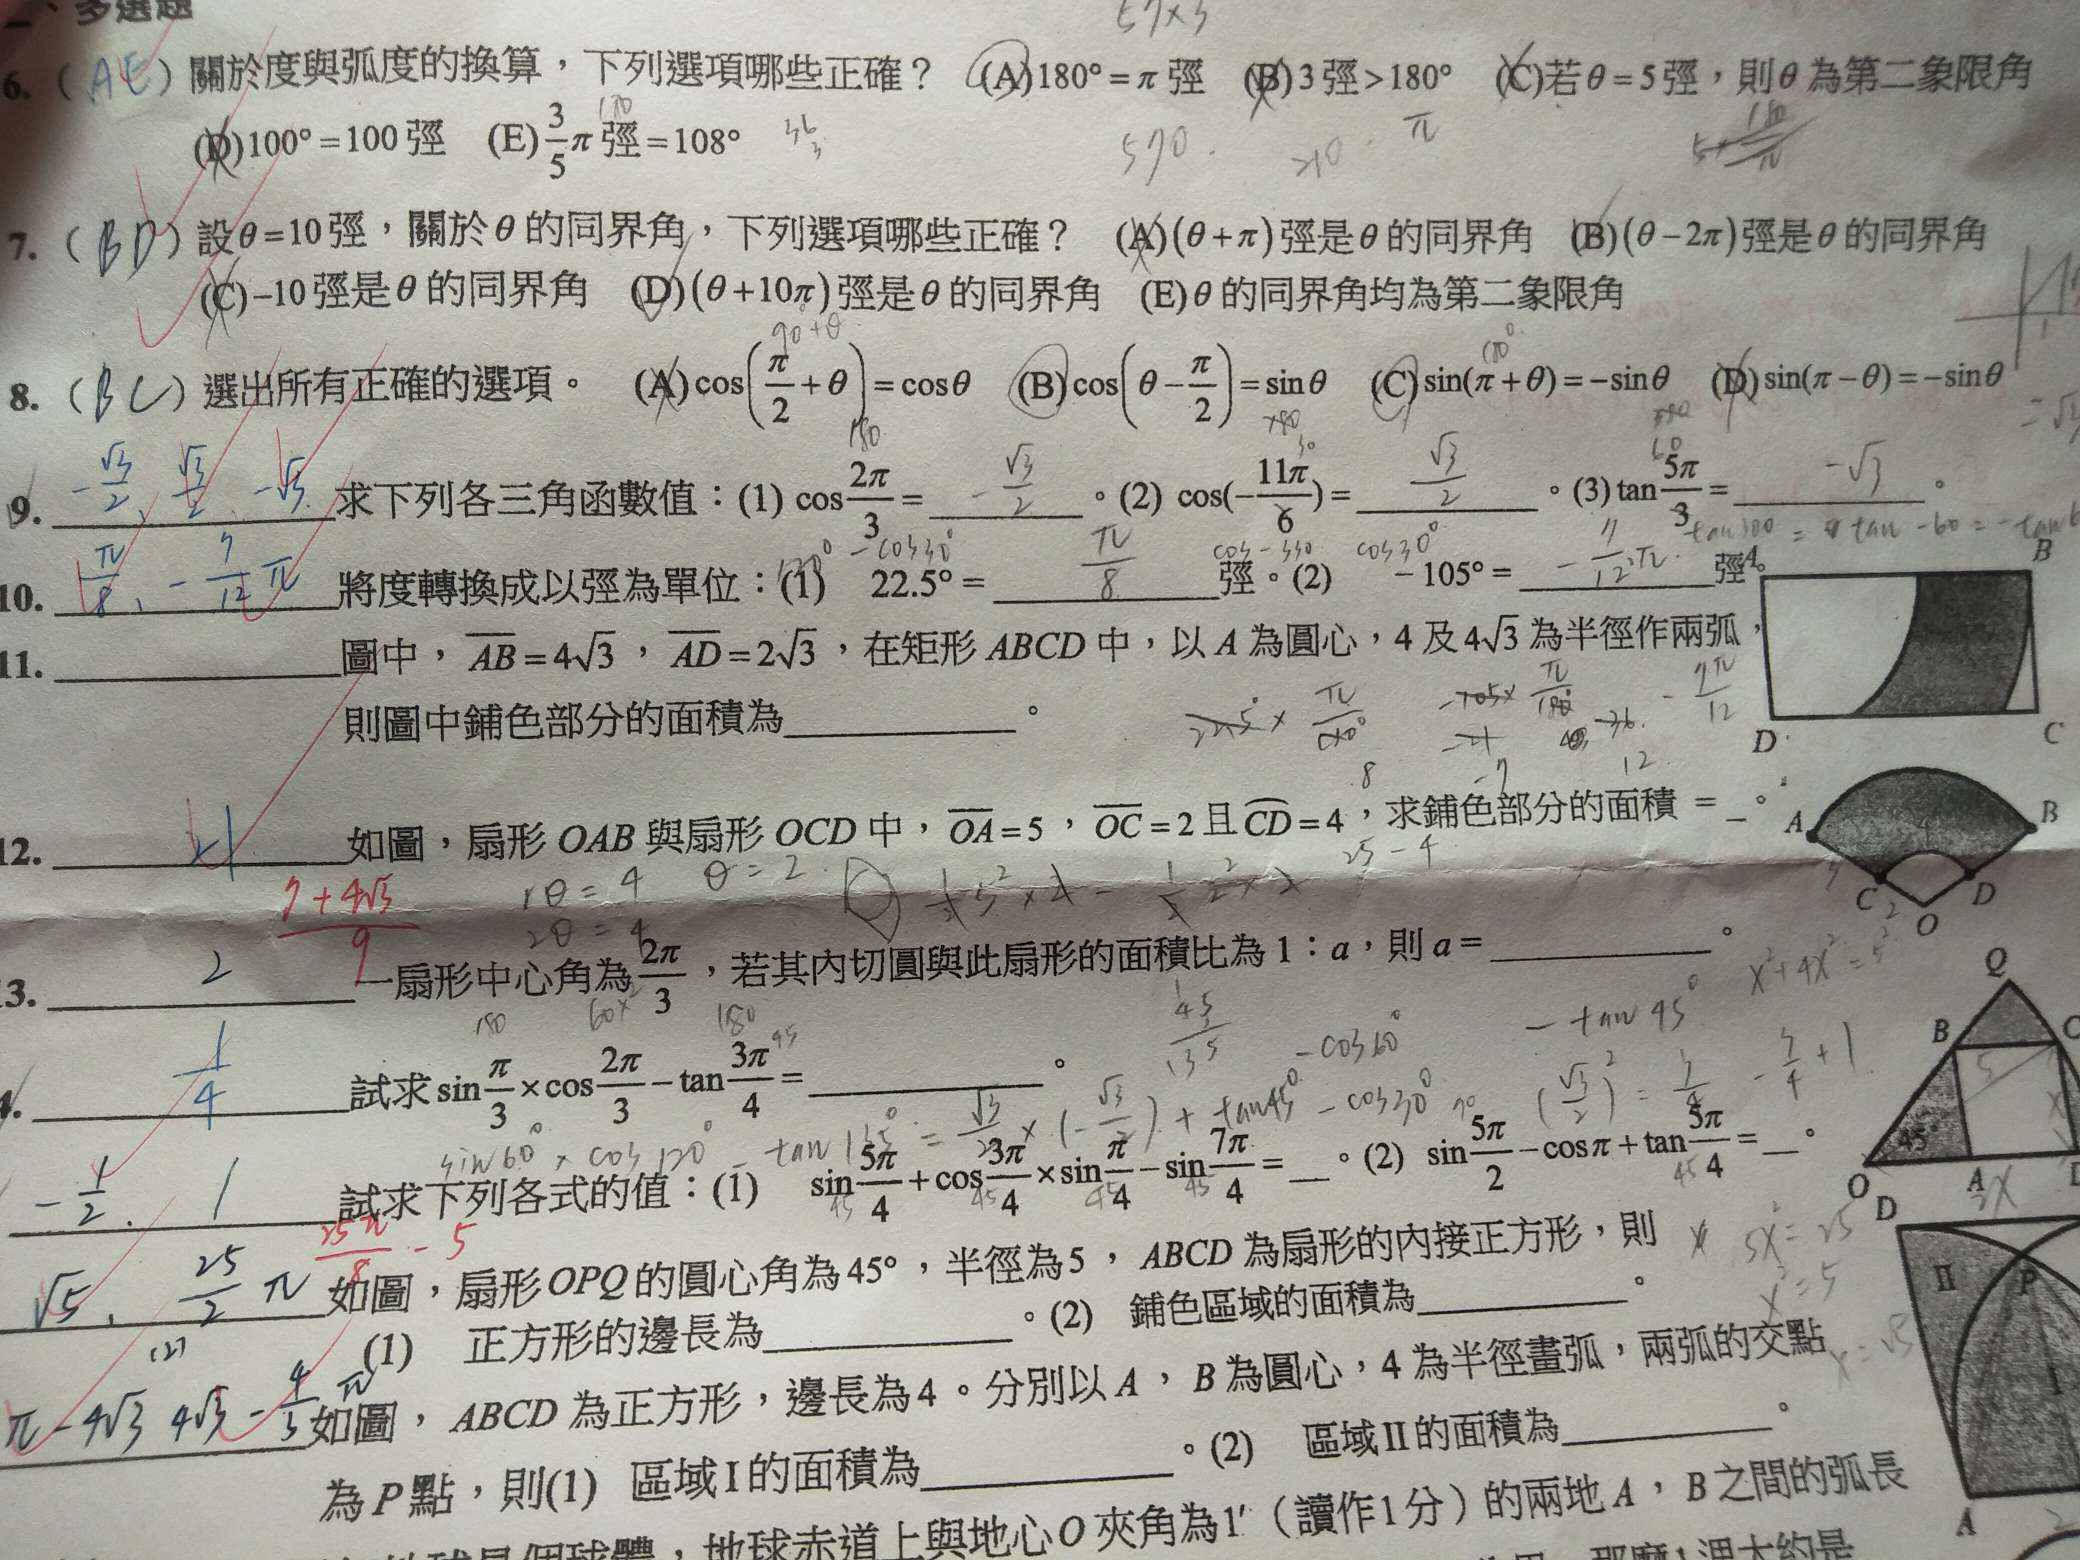 二、多選題
57×3
6. (AE) 關於度與弧度的換算，下列選項哪些正確？ (A)180°=π 弳 (B)3 弳>180° (C)若θ=5弳，則θ 為第二象限角
(D)100°=100 弳 (E) 3/5 π 弳=108°
570.
7. (BD) 設θ=10弳，關於θ 的同界角，下列選項哪些正確？ (A)(θ+π)弳是θ 的同界角 (B)(θ-2π)弳是θ 的同界角
(C)-10 弳是θ 的同界角 (D)(θ+10π)弳是θ 的同界角 (E)θ 的同界角均為第二象限角
90+θ
8. (BC) 選出所有正確的選項。 (A)cos(π/2+θ)=cosθ (B)cos(θ-π/2)=sinθ (C)sin(π+θ)=-sinθ (D)sin(π-θ)=-sinθ
9. -√3/2、√3/2、-√3 求下列各三角函數值：(1) cos 2π/3 = -√3/2 。(2) cos(-11π/6)= √3/2 。(3) tan 5π/3 = -√3 。
-cos30° cos-330 cos30° tan300 = tan-60 = -tan6
10. π/8、-7/12 π 將度轉換成以弳為單位：(1) 22.5°= π/8 弳。(2) -105°= -7/12 π 弳。
B
11. 圖中，AB=4√3，AD=2√3，在矩形 ABCD 中，以 A 為圓心，4 及 4√3 為半徑作兩弧，
則圖中鋪色部分的面積為 。
-7π/12
D C
12. 21 如圖，扇形 OAB 與扇形 OCD 中，OA=5，OC=2 且 CD=4，求鋪色部分的面積 = 。
A B C D O
rθ=4 θ=2 25-4
2θ=4
7+4√3/9
13. 2 一扇形中心角為 2π/3，若其內切圓與此扇形的面積比為 1：a，則 a= 。
x²+4x²=5²
-tan45° -cos60°
1/4 試求 sin π/3 × cos 2π/3 - tan 3π/4 = 。
sin60° × cos120° - tan135° = √3/2 × (-√3/2) + tan45° -cos30° (√3/2)² = 3/4 -3/4+1
-1/2、1 試求下列各式的值：(1) sin 5π/4 + cos 3π/4 × sin π/4 - sin 7π/4 = 。(2) sin 5π/2 - cosπ + tan 5π/4 = 。
Q B C 45° O A D
25π/8 - 5
√5、25/2 π 如圖，扇形 OPQ 的圓心角為 45°，半徑為 5，ABCD 為扇形的內接正方形，則
(1) 正方形的邊長為 。(2) 鋪色區域的面積為 。
5x²=25
x²=5
x=√5
(2)
π-4√3 4√3-4/3 π 如圖，ABCD 為正方形，邊長為 4。分別以 A，B 為圓心，4 為半徑畫弧，兩弧的交點
為 P 點，則(1) 區域 I 的面積為 。(2) 區域 II 的面積為 。
D II P I A
地球赤道上與地心 O 夾角為 1′（讀作 1 分）的兩地 A，B 之間的弧長